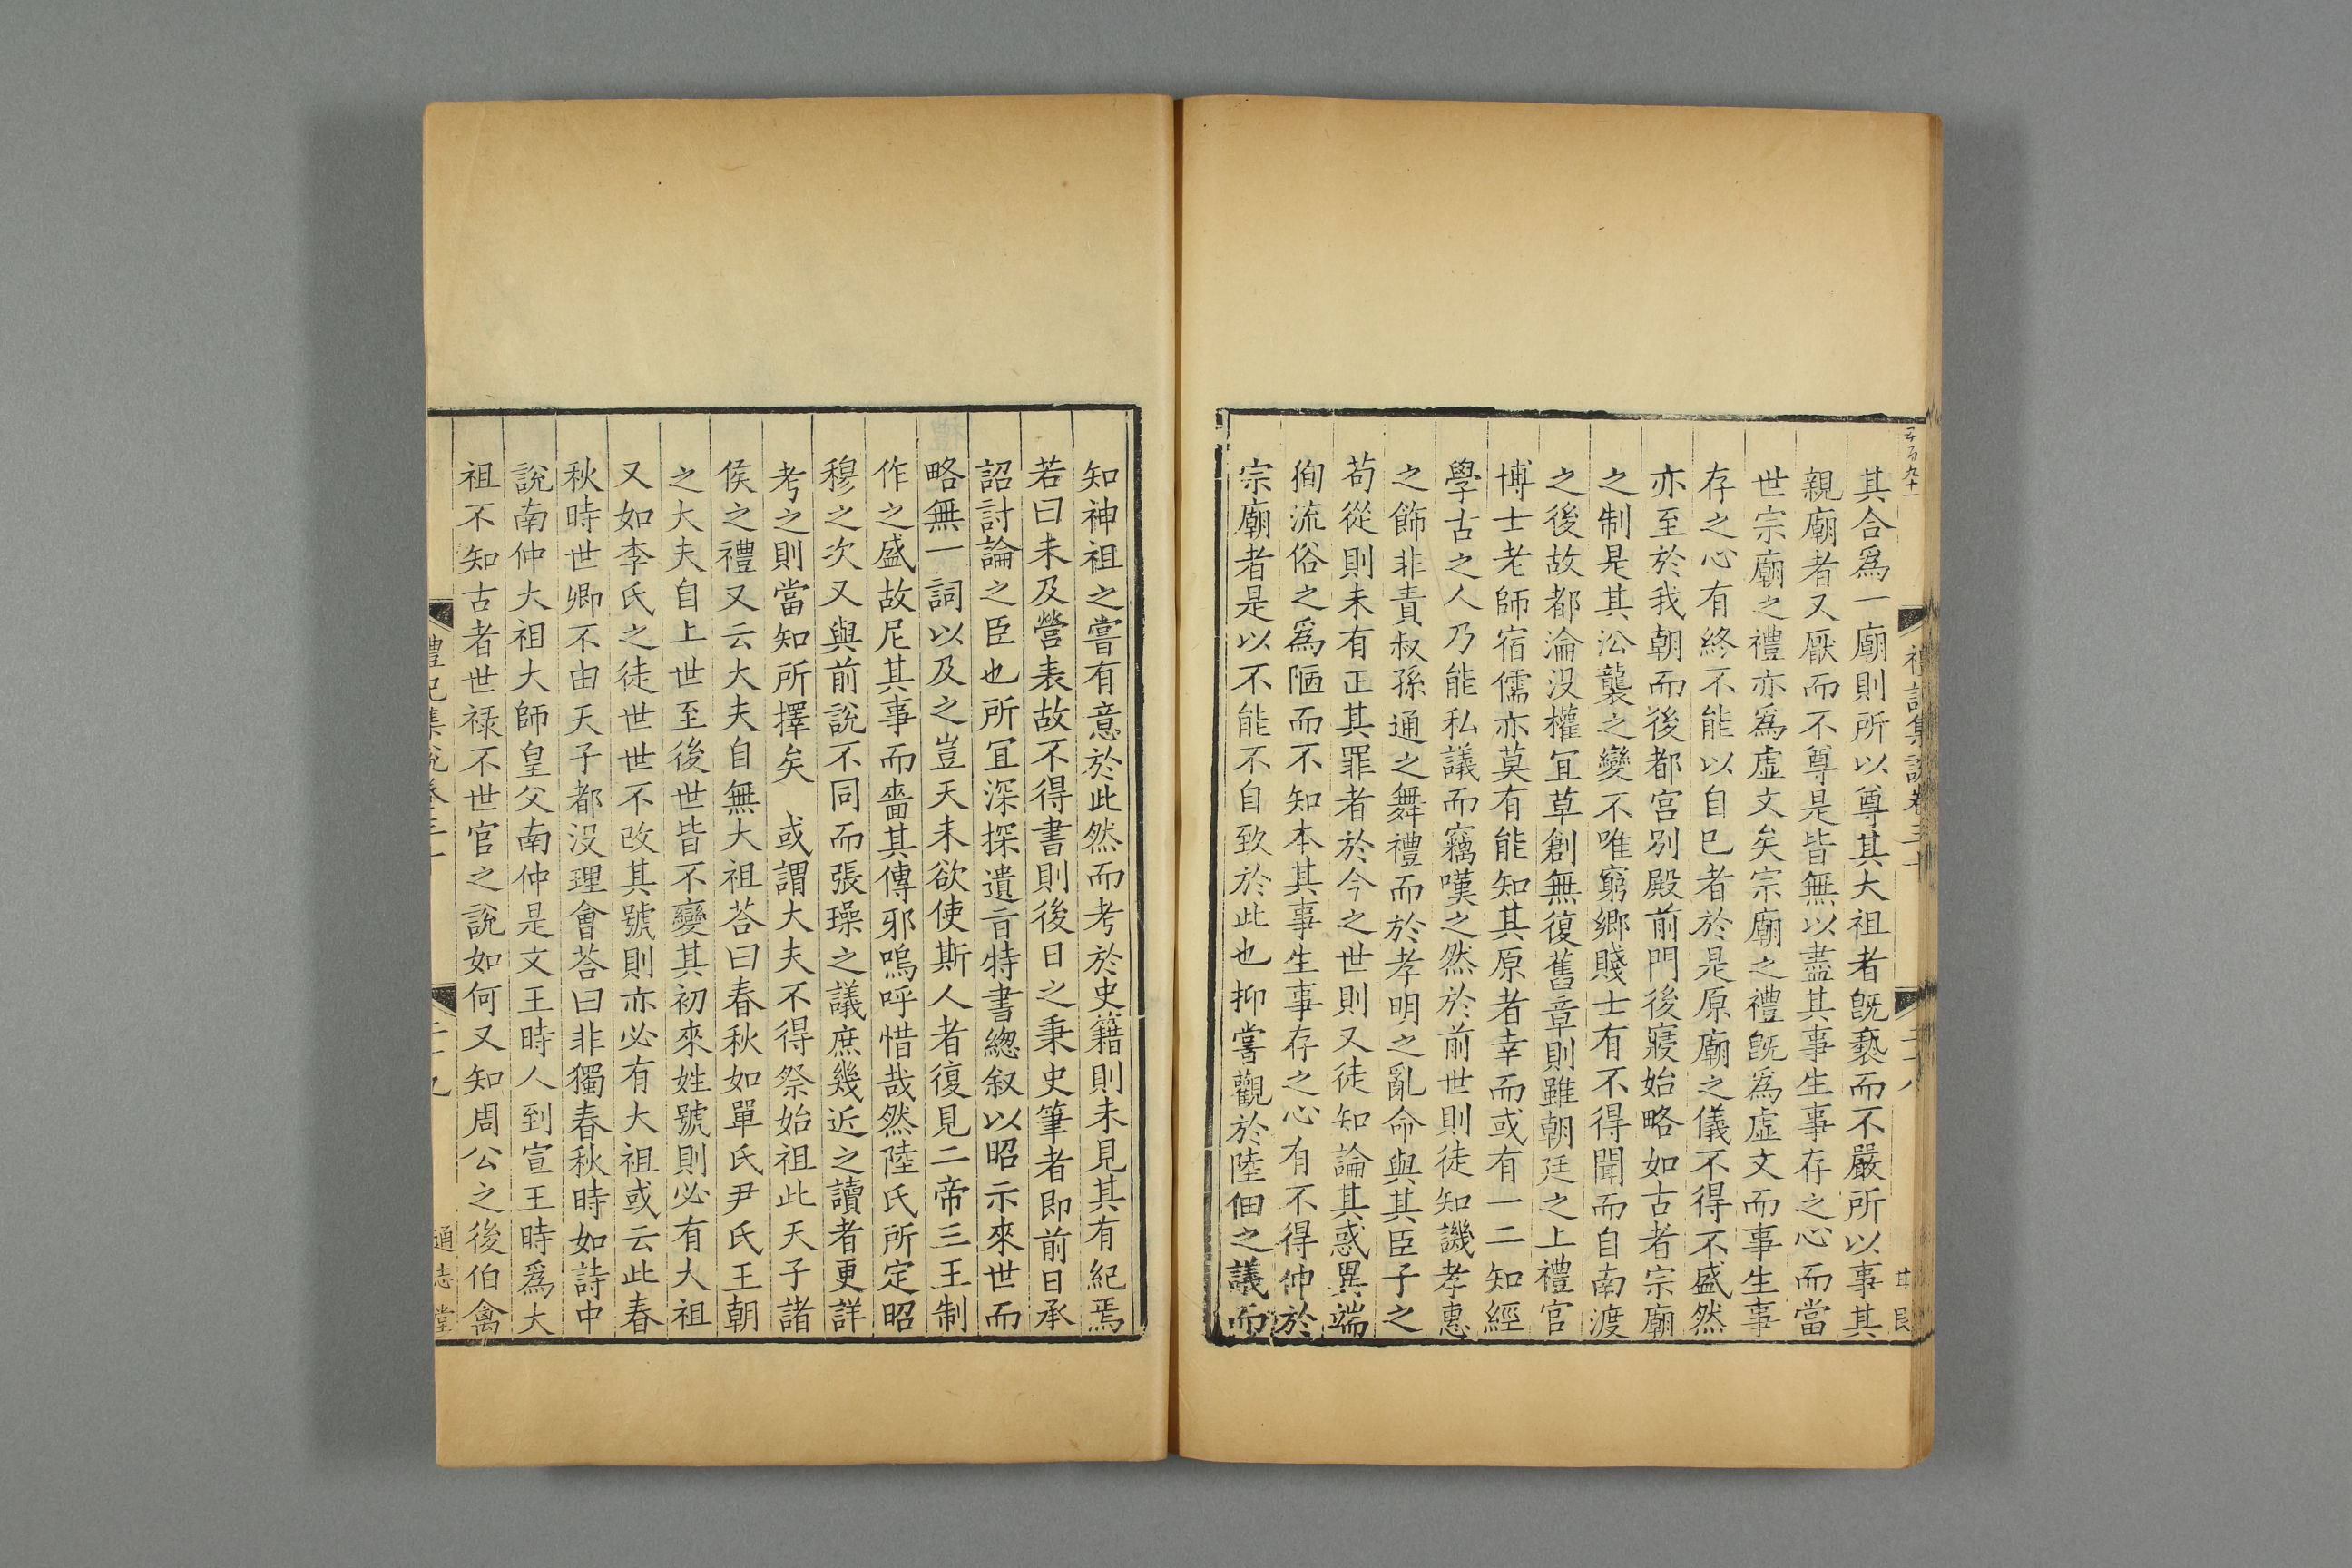 其合爲一廟則所以尊其大祖者旣褻而不嚴所以事其
親廟者又厭而不尊是皆無以盡其事生事存之心而當
世宗廟之禮亦爲虛文矣宗廟之禮旣爲虛文而事生事
存之心有終不能以自已者於是原廟之儀不得不盛然
亦至於我朝而後都宫别殿前門後寢始略如古者宗廟
之制是其沿襲之變不唯窮鄉賤士有不得聞而自南渡
之後故都淪没權冝草創無復舊章則雖朝廷之上禮官
博士老師宿儒亦莫有能知其原者幸而或有一二知經
學古之人乃能私議而竊嘆之然於前世則徒知譏孝惠
之飾非責叔孫通之舞禮而於孝明之亂命與其臣子之
苟從則未有正其罪者於今之世則又徒知論其惑異端
徇流俗之爲陋而不知本其事生事存之心有不得伸於
宗廟者是以不能不自致於此也抑嘗觀於陸佃之議而
知神祖之嘗有意於此然而考於史籍則未見其有紀焉
若曰未及營表故不得書則後日之秉史筆者即前日承
詔討論之臣也所冝深探遺旨特書緫叙以昭示來世而
略無一詞以及之豈天未欲使斯人者復見二帝三王制
作之盛故尼其事而嗇其傳邪嗚呼惜哉然陸氏所定昭
穆之次又與前說不同而張璪之議庶幾近之讀者更詳
考之則當知所擇矣　或謂大夫不得祭始祖此天子諸
侯之禮又云大夫自無大祖荅曰春秋如單氏尹氏王朝
之大夫自上世至後世皆不變其初來姓號則必有大祖
又如季氏之徒世世不改其號則亦必有大祖或云此春
秋時世卿不由天子都没理會荅曰非獨春秋時如詩中
說南仲大祖大師皇父南仲是文王時人到宣王時爲大
祖不知古者世禄不世官之說如何又知周公之後伯禽
禮記集說卷三十
二十九
通志堂